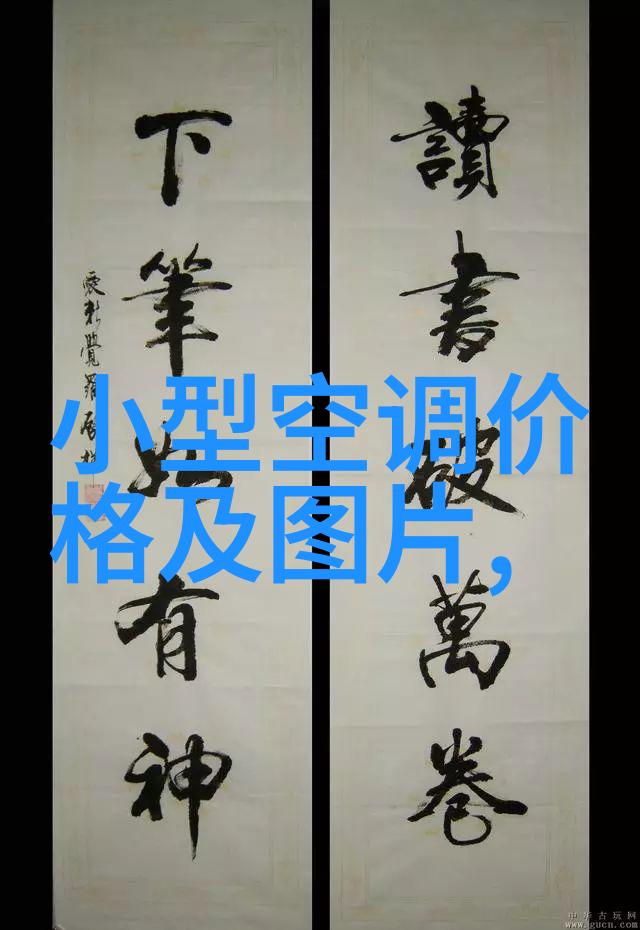 讀書破萬卷
下筆如有神
愛新覺羅
小型空调价
格及图片,
中华古玩网
www.gucn.com